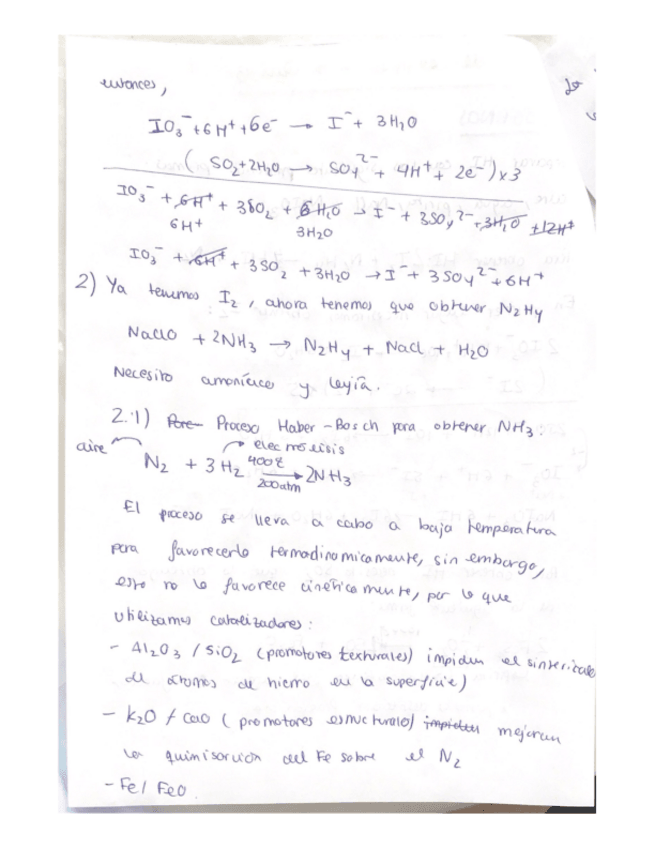 entonces,
IO₃⁻ + 6H⁺ + 6e⁻ → I⁻ + 3H₂O
( SO₂ + 2H₂O → SO₄²⁻ + 4H⁺ + 2e⁻ ) x 3
IO₃⁻ + 6H⁺ + 3SO₂ + 6H₂O → I⁻ + 3SO₄²⁻ + 3H₂O + 12H⁺
6H⁺ 3H₂O
IO₃⁻ + 6H⁺ + 3SO₂ + 3H₂O → I⁻ + 3SO₄²⁻ + 6H⁺
2) Ya tenemos I₂, ahora tenemos que obtener N₂H₄
NaClO + 2NH₃ → N₂H₄ + NaCl + H₂O
Necesito amoníaco y lejía.
2.1) Para Proceso Haber-Bosch para obtener NH₃:
aire electrólisis
N₂ + 3H₂ 400ºC 200atm → 2NH₃
El proceso se lleva a cabo a baja temperatura
para favorecerlo termodinamicamente, sin embargo,
esto no lo favorece cinéticamente, por lo que
utilizamos catalizadores:
- Al₂O₃ / SiO₂ (promotores texturales) impiden el sinterizado
de átomos de hierro en la superficie)
- K₂O / CaO (promotores estructurales) impiden mejoran
la quimisorción del Fe sobre el N₂
- Fe / FeO.